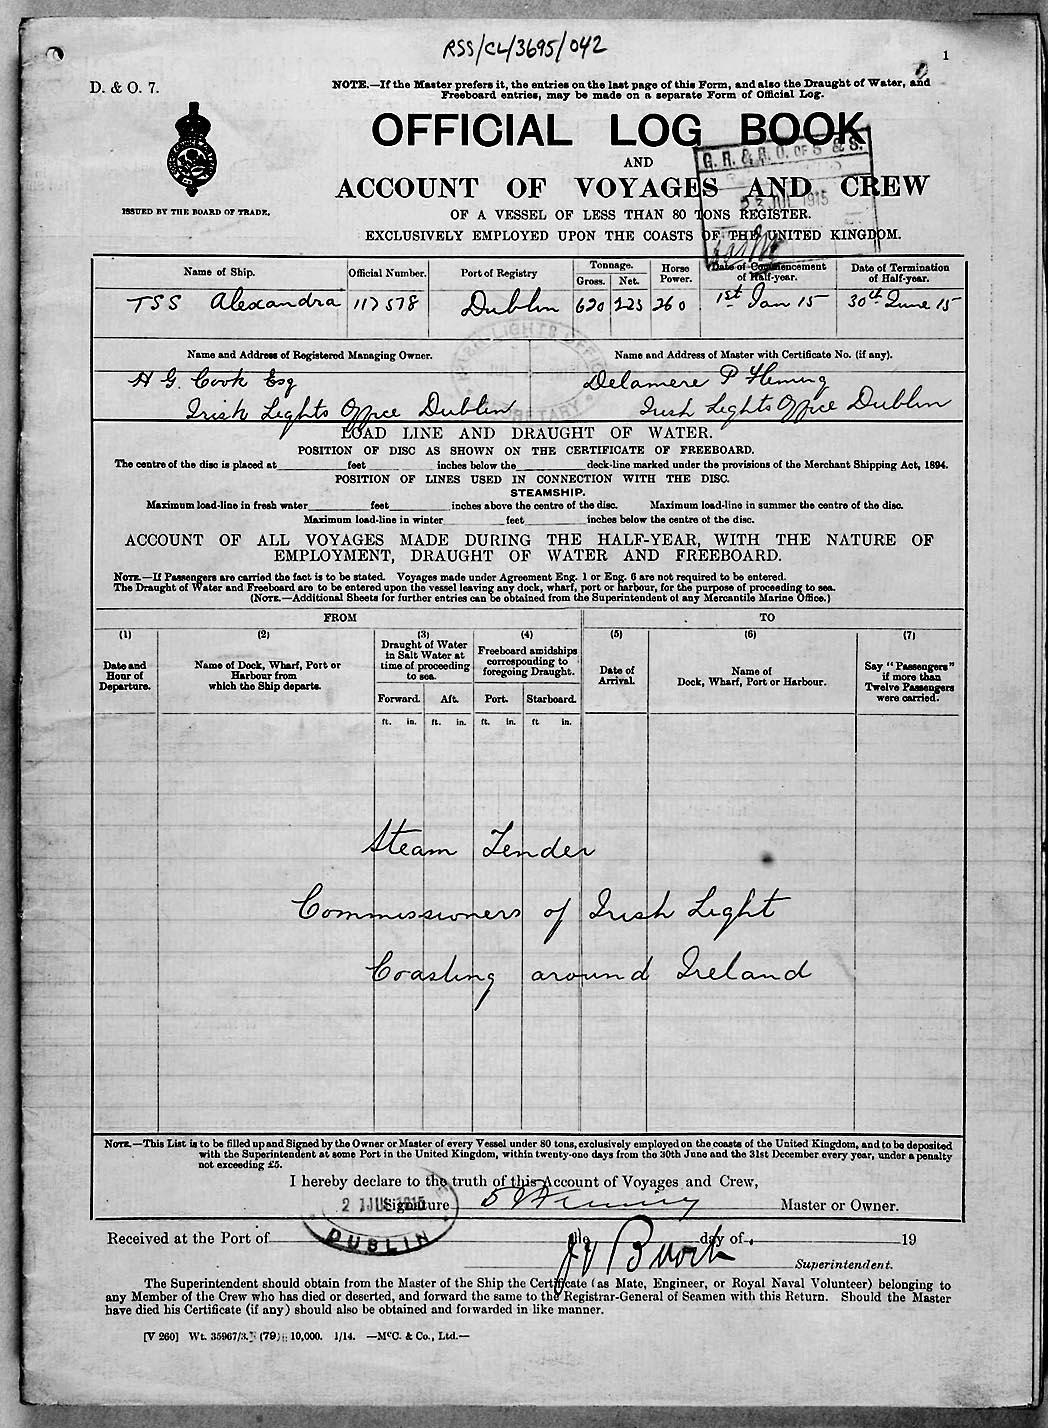 RSS/CL/3695/042
1
D. & O. 7.
NOTE.—If the Master prefers it, the entries on the last page of this Form, and also the Draught of Water, and
Freeboard entries, may be made on a separate Form of Official Log.
OFFICIAL LOG BOOK
AND
ACCOUNT OF VOYAGES AND CREW
OF A VESSEL OF LESS THAN 80 TONS REGISTER.
EXCLUSIVELY EMPLOYED UPON THE COASTS OF THE UNITED KINGDOM.
ISSUED BY THE BOARD OF TRADE.
G. R. & R. O. OF S & S.
23 JUL 1915
Name of Ship. Official Number. Port of Registry Tonnage. Gross. Net. Horse Power. Date of Commencement of Half-year. Date of Termination of Half-year.
TSS Alexandra 117578 Dublin 620 223 260 1st Jan 15 30th June 15
Name and Address of Registered Managing Owner. Name and Address of Master with Certificate No. (if any).
H G. Cook Esq Delamere P Fleming
Irish Lights Office Dublin Irish Lights Office Dublin
LOAD LINE AND DRAUGHT OF WATER.
POSITION OF DISC AS SHOWN ON THE CERTIFICATE OF FREEBOARD.
The centre of the disc is placed at feet inches below the deck-line marked under the provisions of the Merchant Shipping Act, 1894.
POSITION OF LINES USED IN CONNECTION WITH THE DISC.
STEAMSHIP.
Maximum load-line in fresh water feet inches above the centre of the disc. Maximum load-line in summer the centre of the disc.
Maximum load-line in winter feet inches below the centre of the disc.
ACCOUNT OF ALL VOYAGES MADE DURING THE HALF-YEAR, WITH THE NATURE OF
EMPLOYMENT, DRAUGHT OF WATER AND FREEBOARD.
NOTE.—If Passengers are carried the fact is to be stated. Voyages made under Agreement Eng. 1 or Eng. 6 are not required to be entered.
The Draught of Water and Freeboard are to be entered upon the vessel leaving any dock, wharf, port or harbour, for the purpose of proceeding to sea.
(NOTE.—Additional Sheets for further entries can be obtained from the Superintendent of any Mercantile Marine Office.)
FROM TO
(1) (2) (3) (4) (5) (6) (7)
Date and Hour of Departure.
Name of Dock, Wharf, Port or Harbour from which the Ship departs.
Draught of Water in Salt Water at time of proceeding to sea.
Freeboard amidships corresponding to foregoing Draught.
Date of Arrival.
Name of Dock, Wharf, Port or Harbour.
Say "Passengers" if more than Twelve Passengers were carried.
Forward. Aft. Port. Starboard.
ft. in. ft. in. ft. in. ft in.
Steam Tender
Commissioners of Irish Light
Coasting around Ireland
NOTE.—This List is to be filled up and Signed by the Owner or Master of every Vessel under 80 tons, exclusively employed on the coasts of the United Kingdom, and to be deposited
with the Superintendent at some Port in the United Kingdom, within twenty-one days from the 30th June and the 31st December every year, under a penalty
not exceeding £5.
I hereby declare to the truth of this Account of Voyages and Crew,
Signature D P Fleming Master or Owner.
2 JUL 1915
DUBLIN
Received at the Port of the day of 19
Superintendent.
The Superintendent should obtain from the Master of the Ship the Certificate (as Mate, Engineer, or Royal Naval Volunteer) belonging to
any Member of the Crew who has died or deserted, and forward the same to the Registrar-General of Seamen with this Return. Should the Master
have died his Certificate (if any) should also be obtained and forwarded in like manner.
[V 260] Wt. 35967/3. (79) 10,000. 1/14. —McC. & Co., Ltd.—